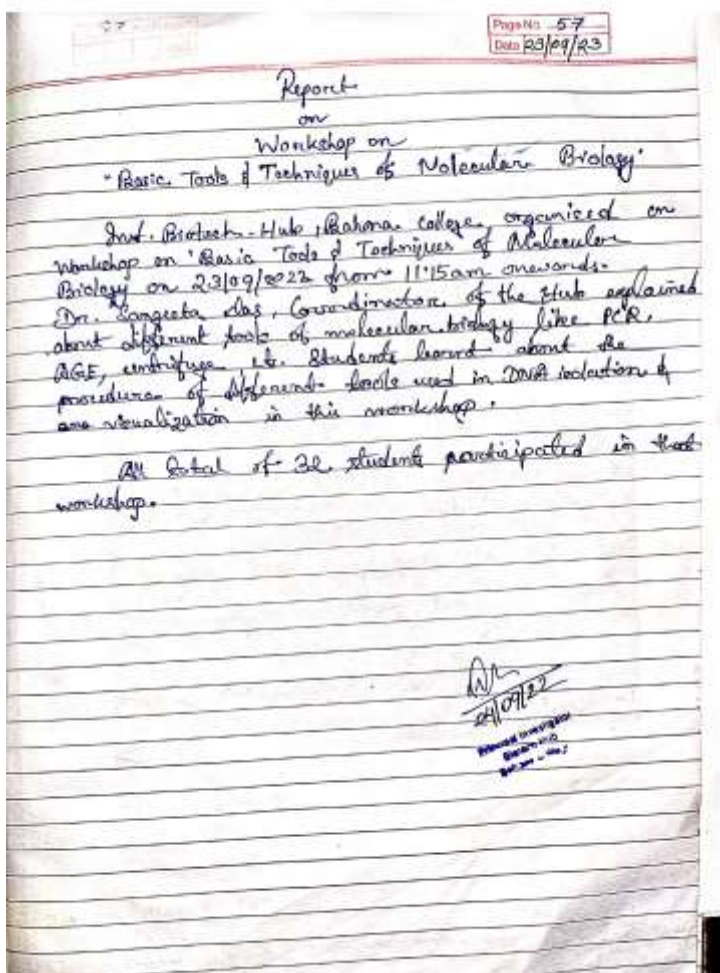 Page No. 57
Date 23/09/23
Report
on
Workshop on
"Basic Tools & Techniques of Molecular Biology"
Inst. Biotech-Hub, Bahona College, organised on
Workshop on 'Basic Tools & Techniques of Molecular
Biology on 23/09/2022 from 11:15am onwards.
Dr. Sangeeta Das, Co-ordinator of the Hub explained
about different tools of molecular biology like PCR,
AGE, centrifuge etc. Students learnt about the
procedure of different tools used in DNA isolation &
visualization in this workshop.
All total of 32 students participated in that
workshop.
24/09/22
Principal Investigator